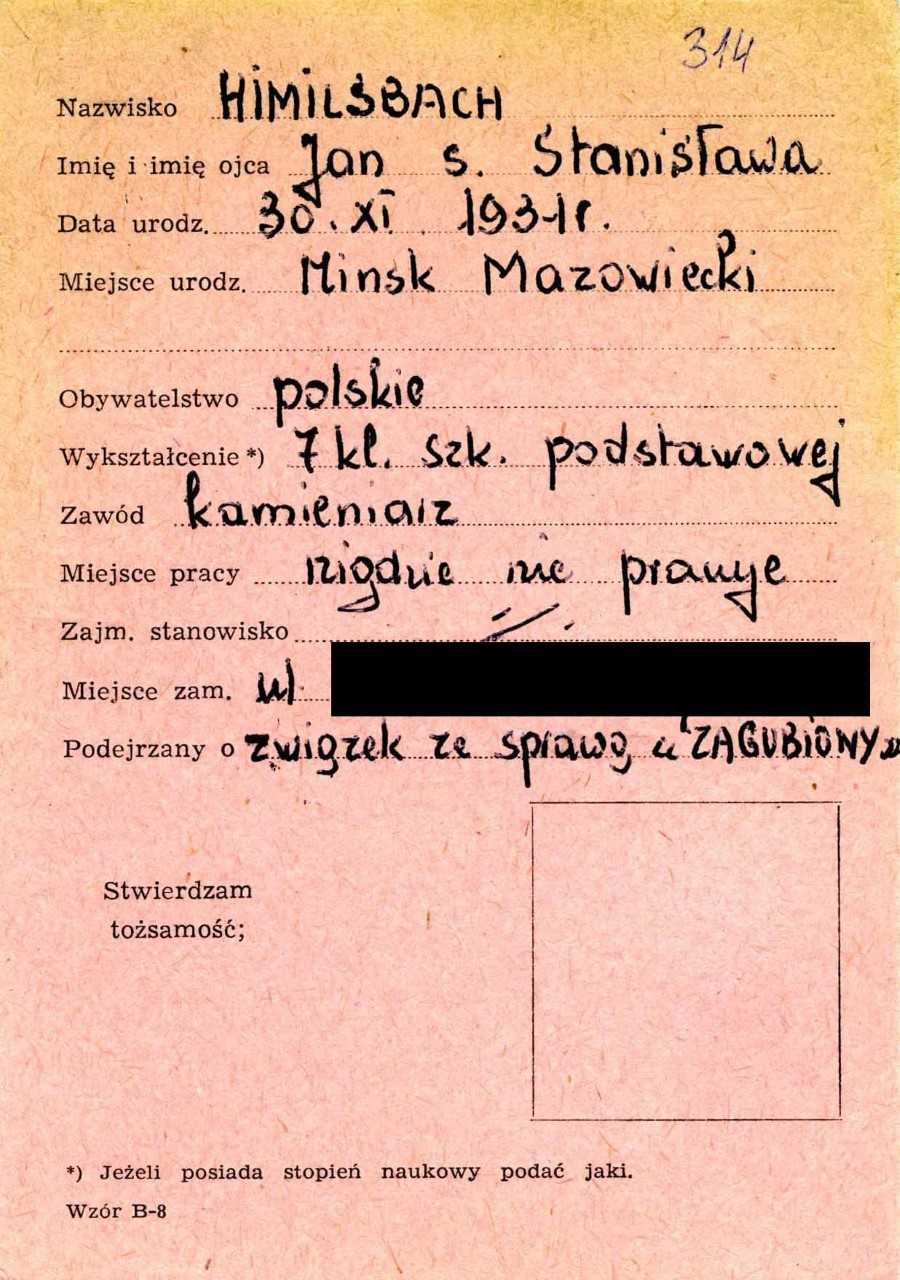 314
Nazwisko HIMILSBACH
Imię i imię ojca Jan s. Stanisława
Data urodz. 30.XI. 1931r.
Miejsce urodz. Minsk Mazowiecki
Obywatelstwo polskie
Wykształcenie *) 7 kl. szk. podstawowej
Zawód kamieniarz
Miejsce pracy nigdzie nie pracuje
Zajm. stanowisko
Miejsce zam. ul.
Podejrzany o związek ze sprawą "ZAGUBIONY"
Stwierdzam
tożsamość;
*) Jeżeli posiada stopień naukowy podać jaki.
Wzór B-8